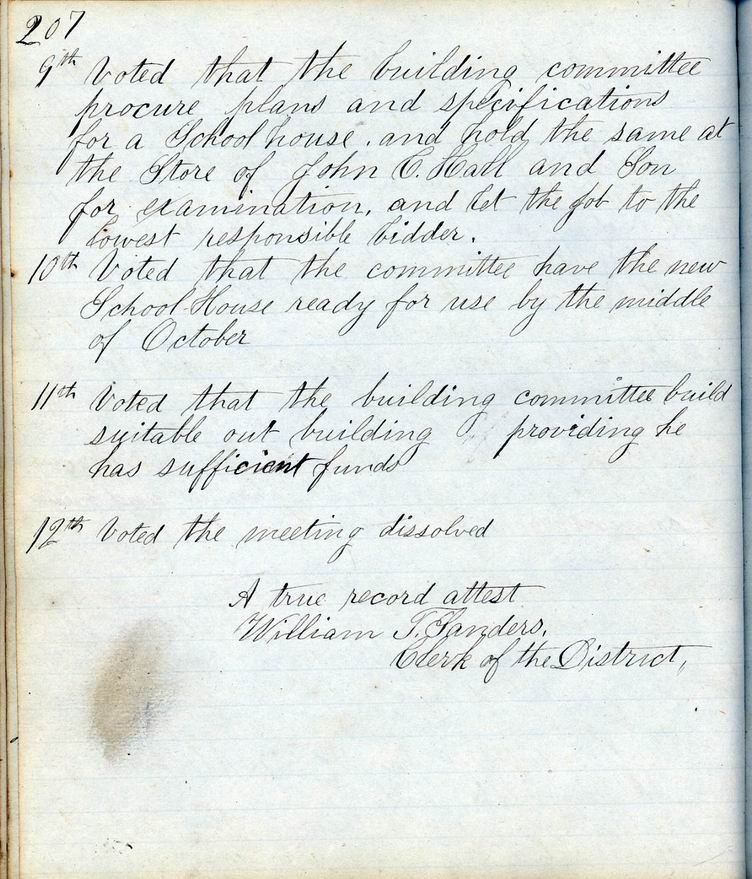 207
9th Voted that the building committee
procure plans and specifications
for a School house, and hold the same at
the Store of John C. Hall and Son
for examination, and let the job to the
lowest responsible bidder.
10th Voted that the committee have the new
School-House ready for use by the middle
of October
11th Voted that the building committee build
suitable out building providing he
has sufficient funds
12th Voted the meeting dissolved
A true record attest
William T. Sanders,
Clerk of the District,